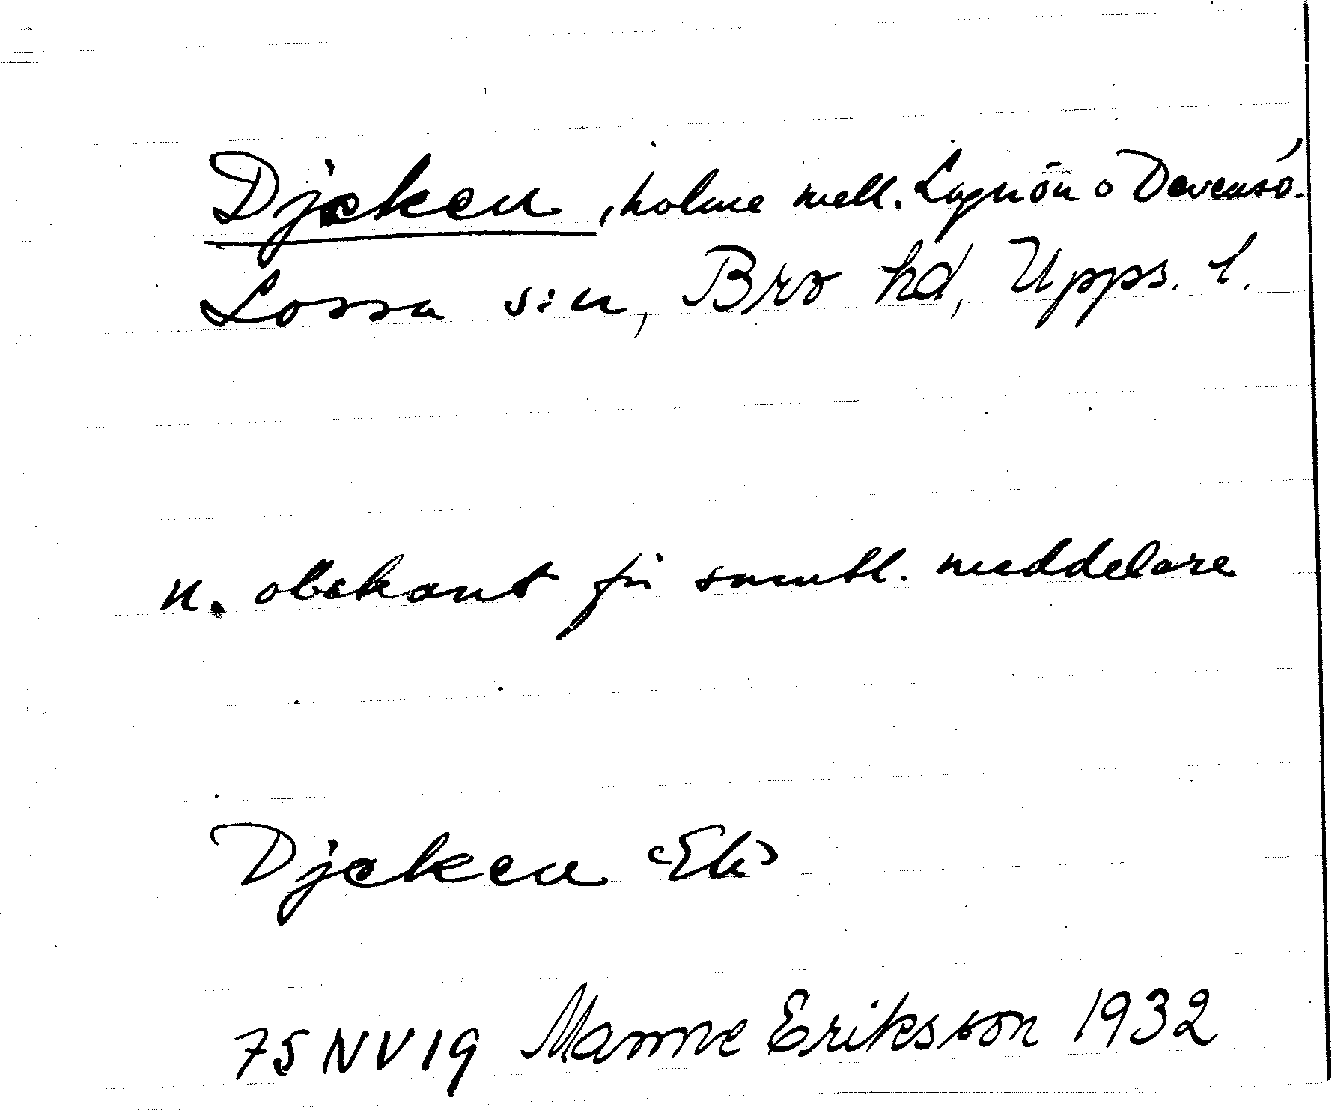 Djeken, holme mell. Lagnön o Dävensö.
Lossa s:n, Bro hd, Upps. l.
n. obekant för samtl. meddelare
Djeken <Ek>
75 NV 19 Manne Eriksson 1932